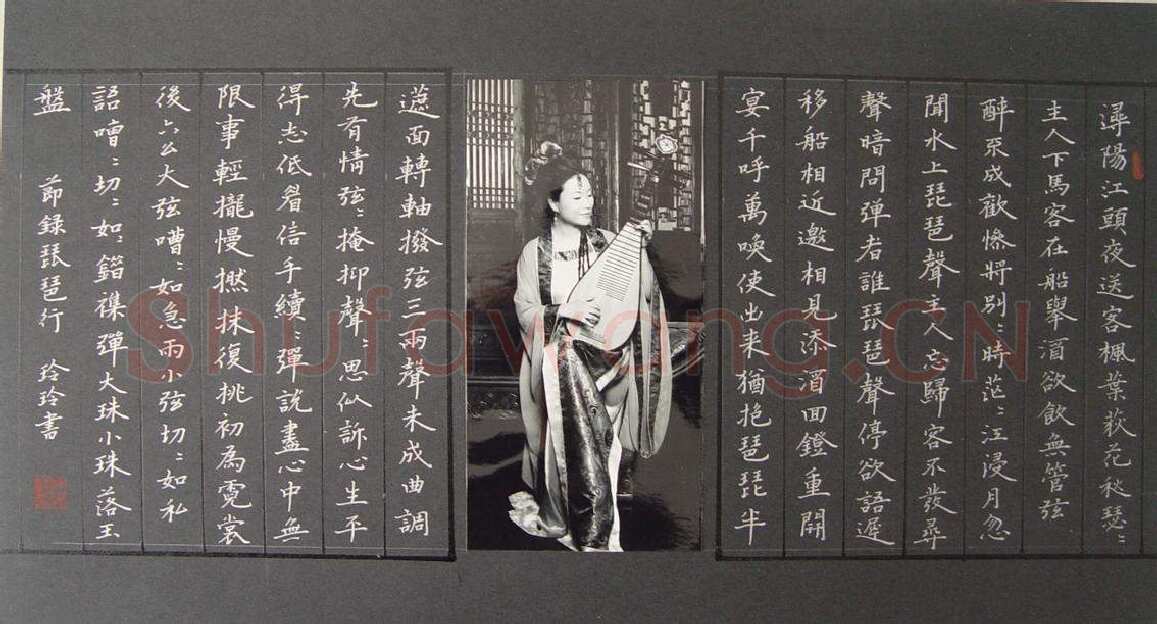 潯陽江頭夜送客楓葉荻花秋瑟〻
主人下馬客在船舉酒欲飲無管弦
醉不成歡慘將別〻時茫〻江浸月忽
聞水上琵琶聲主人忘歸客不發尋
聲暗問弹者誰琵琶聲停欲語遲
移船相近邀相見添酒回鐙重開
宴千呼萬喚使出来猶抱琶琵半
遮面轉軸撥弦三兩聲未成曲調
先有情弦〻掩抑聲〻思似訴心生平
得志低眉信手續〻彈說盡心中無
限事輕攏慢撚抹復挑初為霓裳
後六么大弦嘈〻如急雨小弦切〻如私
語嘈〻切〻如〻錯襍彈大珠小珠落玉
盤 節錄琵琶行 玲玲書
Shufawang.CN